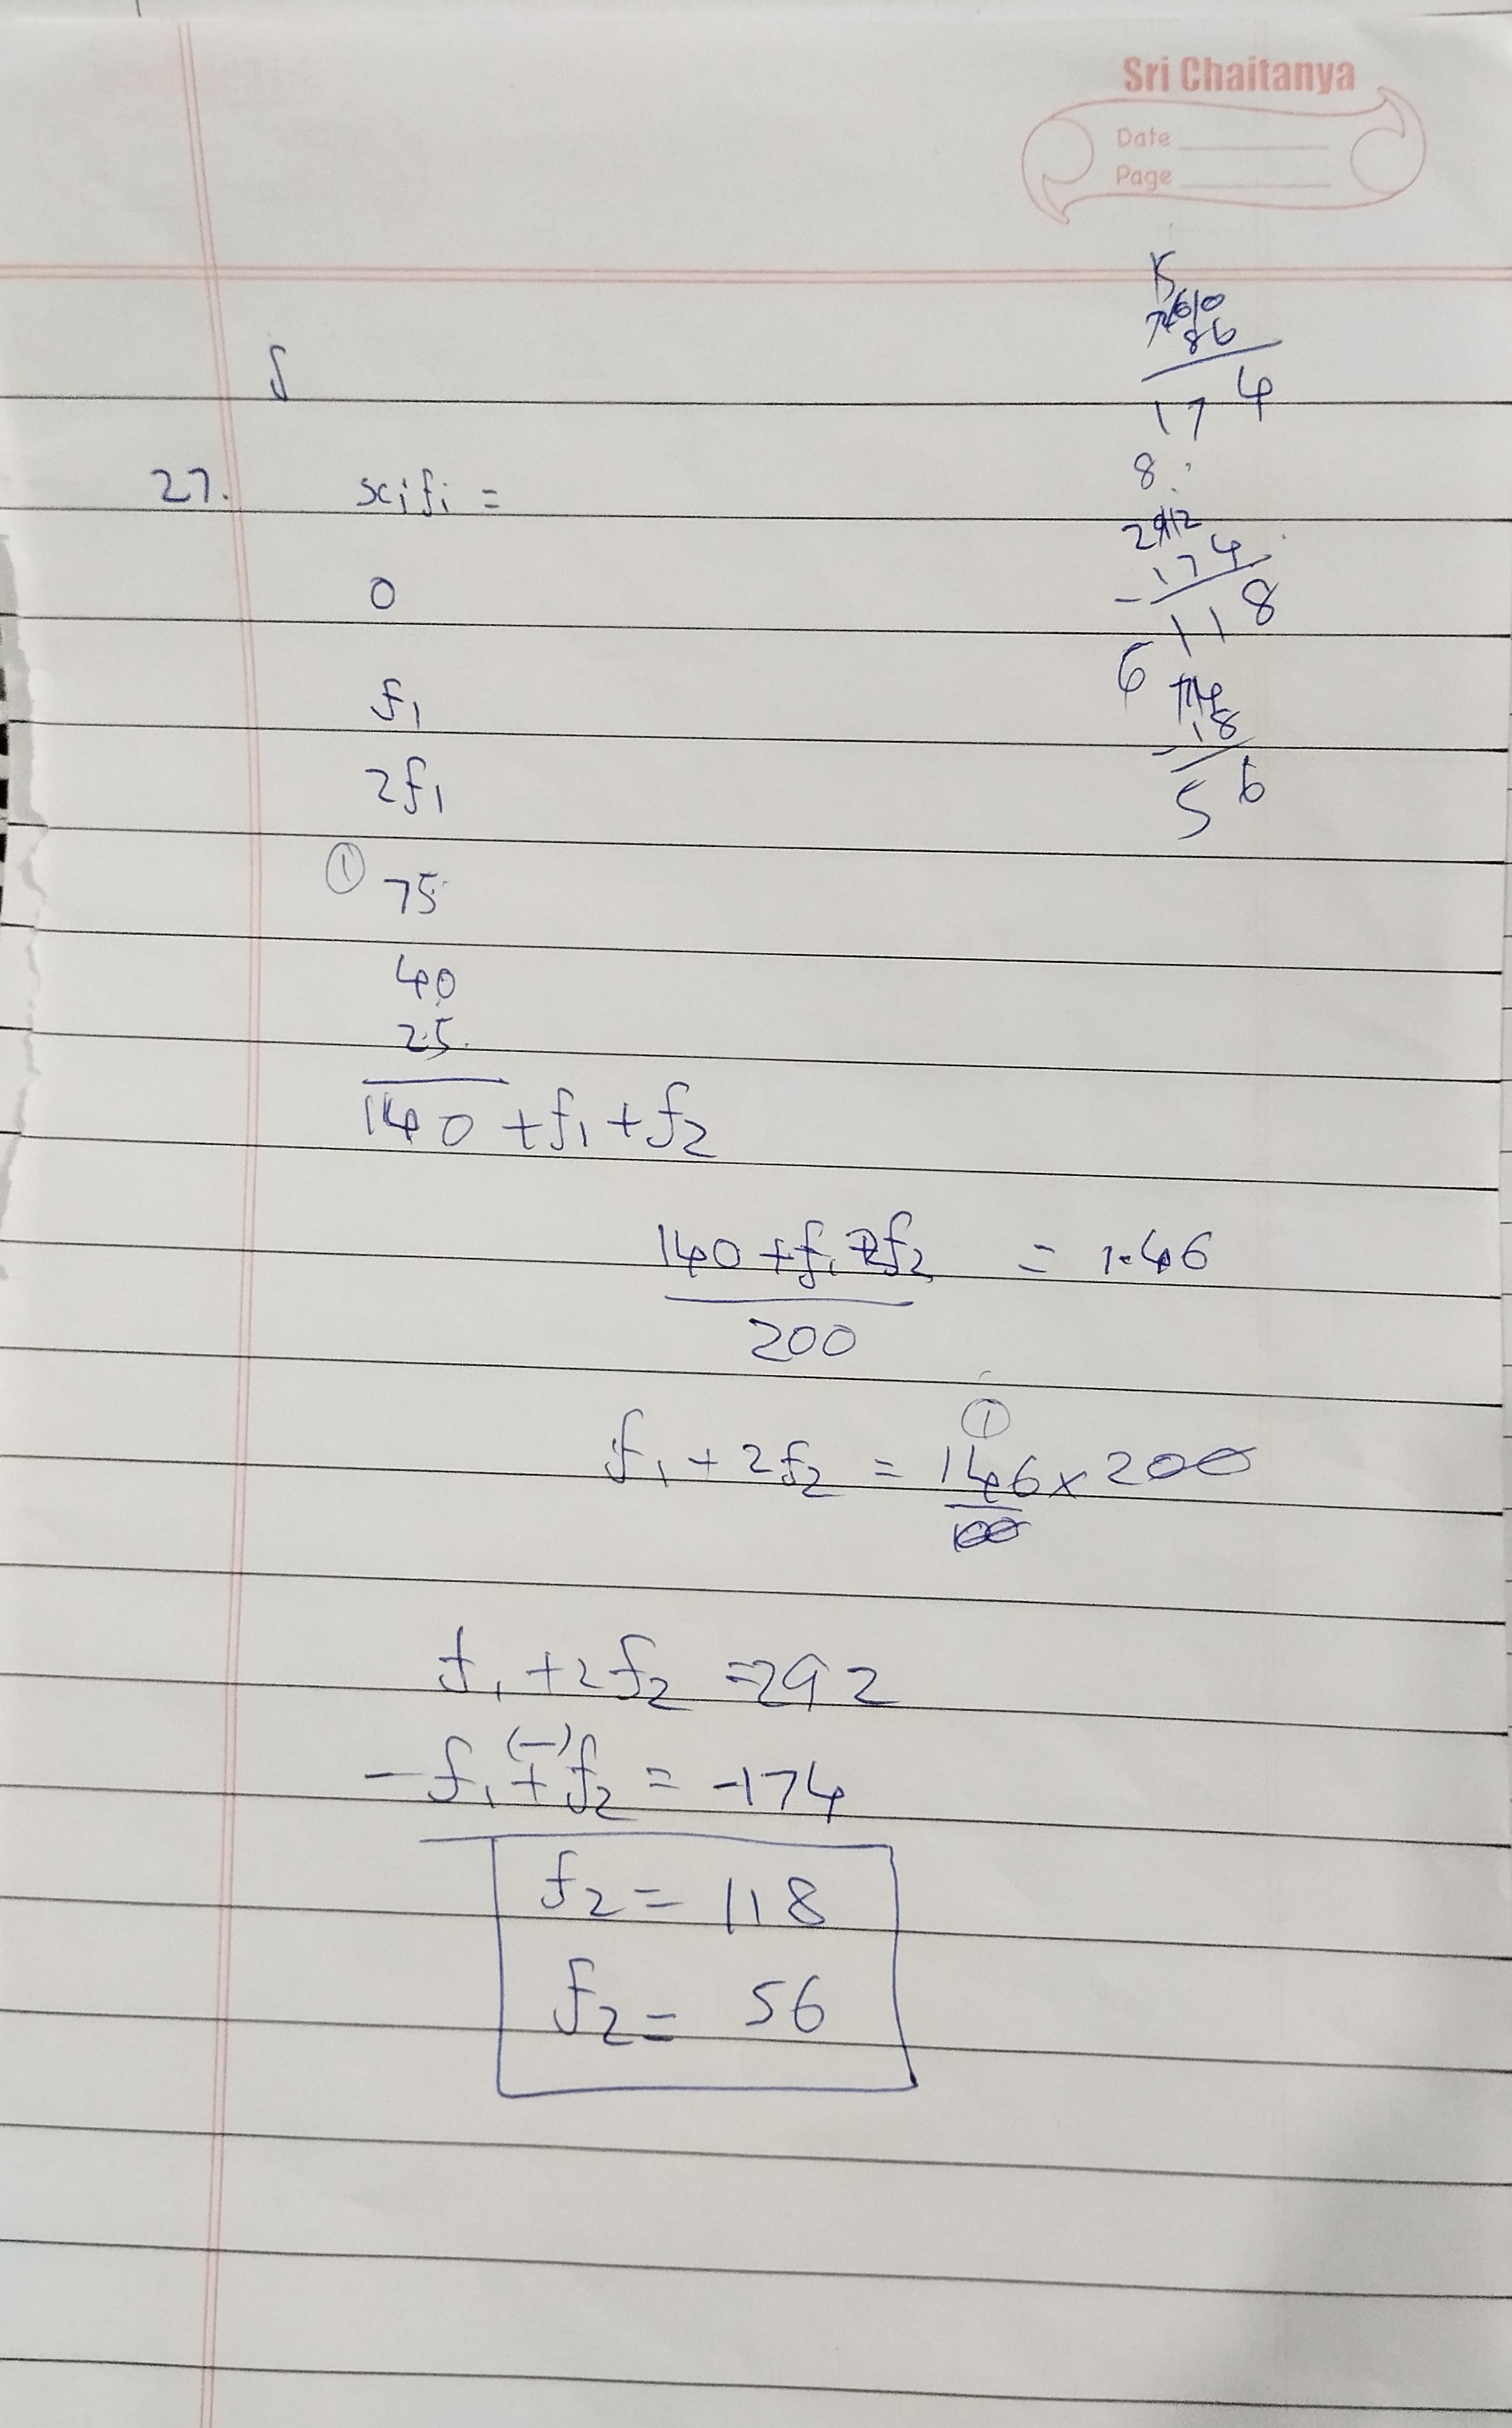 Sri Chaitanya
Date
Page
27. xifi =
0
f1
2f1
① 75
40
25
140 + f1 + f2
140 + f1 2f2 = 1.46
200
①
f1 + 2f2 = 146 x 200
100
f1 + 2f2 = 292
(-)
- f1 + f2 = -174
f2 = 118
f2 = 56
86
17 4
8
174
- 118
6
18
- 56